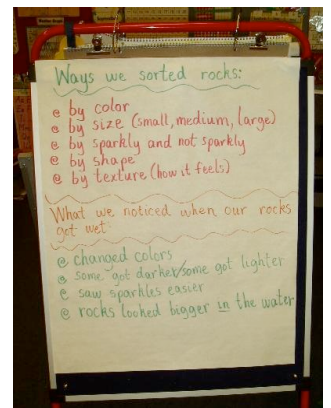 Ways we sorted rocks:
by color
by size (small, medium, large)
by sparkly and not sparkly
by shape
by texture (how it feels)
What we noticed when our rocks
got wet
changed colors
some got darker/some got lighter
saw sparkles easier
rocks looked bigger in the water